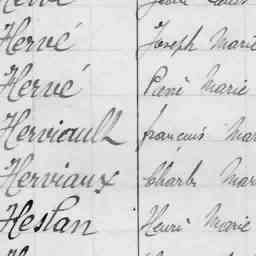 Hervé Joseph Marie
Hervé René Marie
Herviault françois Mar
Herviaux Charles Mar
Heslan Henri Marie